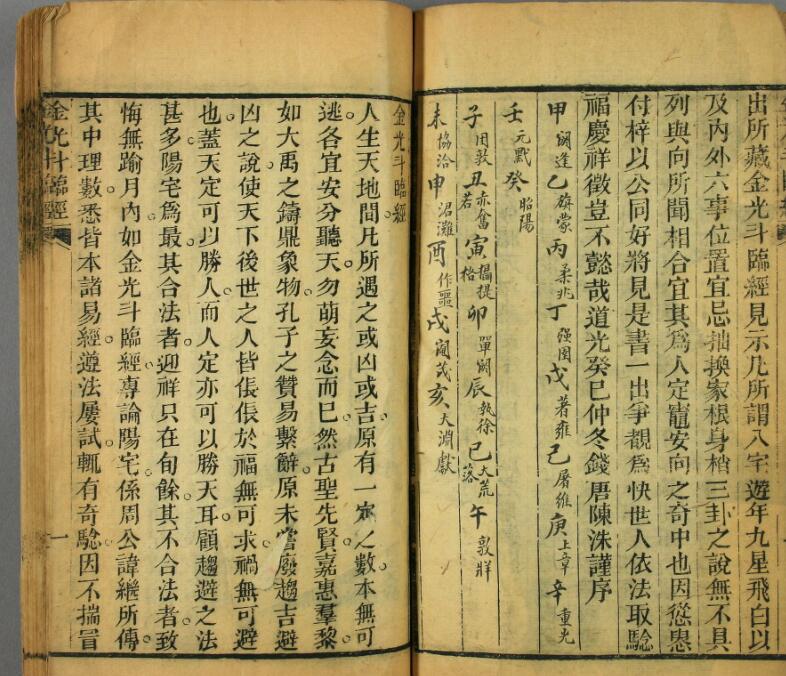 出所藏金光斗臨經見示凡所謂八宅遊年九星飛白以
及內外六事位置宜忌抽換家根身樁三卦之說無不具
列與向所聞相合宜其爲人定竈安向之奇中也因慫恿
付梓以公同好將見是書一出爭覩爲快世人依法取驗
福慶祥徵豈不懿哉道光癸巳仲冬錢唐陳洙謹序
甲閼逢乙旃蒙丙柔兆丁强圉戊著雍己屠維庚上章辛重光
壬元黓癸昭陽
子困敦丑赤奮若寅攝提格卯單閼辰執徐巳大荒落午敦牂
未協洽申涒灘酉作噩戌閹茂亥大淵獻
金光斗臨經
人生天地間凡所遇之或凶或吉原有一定之數本無可
逃各宜安分聽天勿萌妄念而已然古聖先賢嘉惠羣黎
如大禹之鑄鼎象物孔子之贊易繫辭原未嘗廢趨吉避
凶之說使天下後世之人皆倀倀於福無可求禍無可避
也蓋天定可以勝人而人定亦可以勝天耳顧趨避之法
甚多陽宅爲最其合法者迎祥只在旬餘其不合法者致
悔無踰月內如金光斗臨經專論陽宅係周公諱繼所傳
其中理數悉皆本諸易經遵法屢試輒有奇驗因不揣冒
金光斗臨經
一